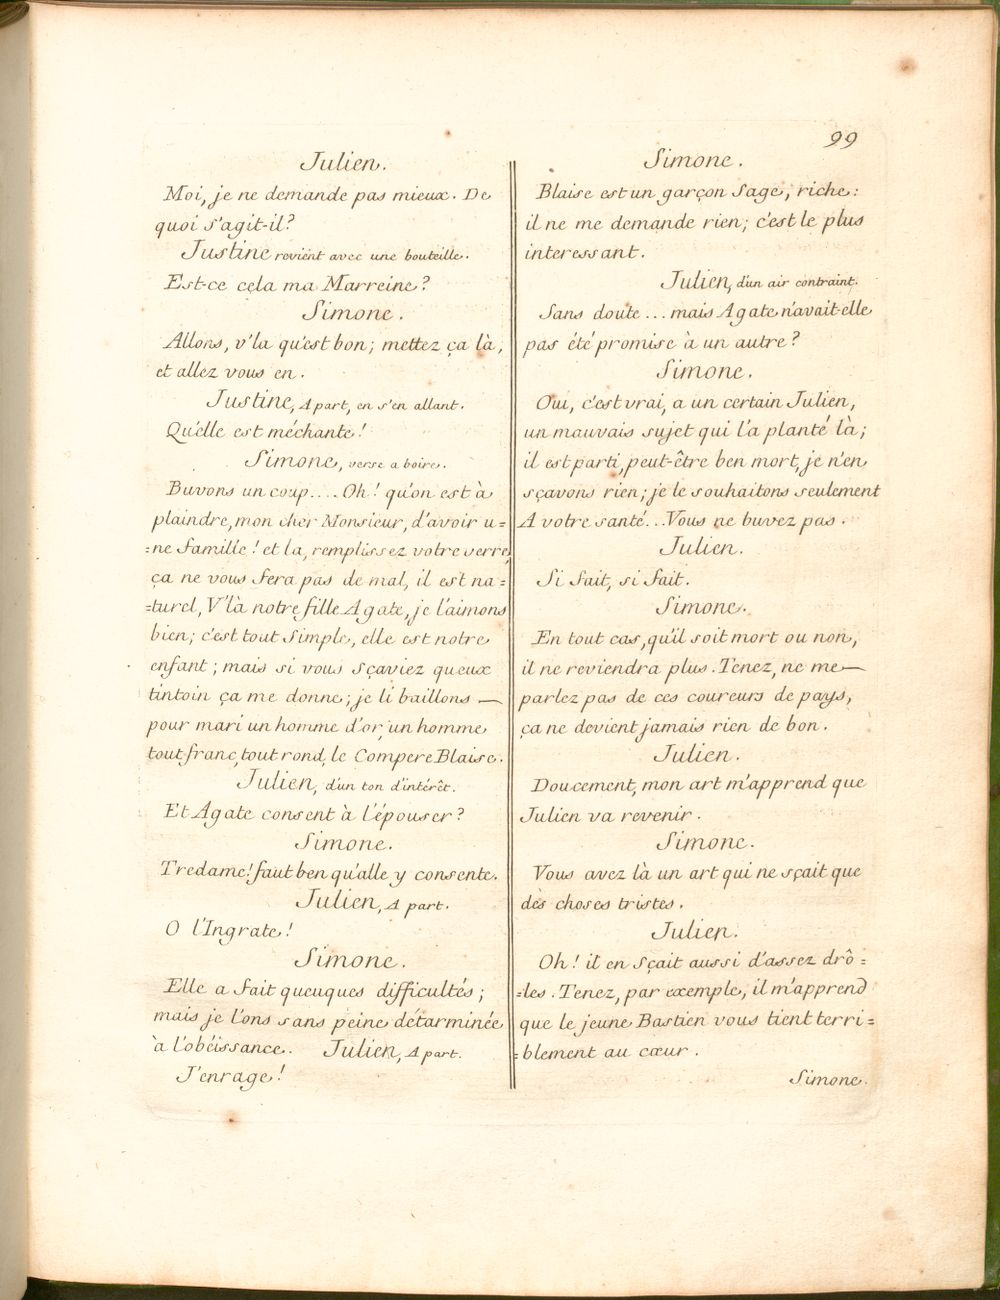 99
Julien.
Moi, je ne demande pas mieux. De
quoi s'agit-il?
Justine revient avec une bouteille.
Est-ce cela ma Marreine?
Simone.
Allons, v'la qu'est bon; mettez ça là,
et allez vous en.
Justine, A part, en s'en allant.
Qu'elle est méchante!
Simone, verse a boire.
Buvons un coup.... Oh! qu'on est à
plaindre, mon cher Monsieur, d'avoir u=
=ne famille! et la, remplissez votre verre,
ça ne vous fera pas de mal, il est na=
=turel, V'là notre fille Agate, je l'aimons
bien; c'est tout simple, elle est notre
enfant; mais si vous sçaviez queux
tintoin ça me donne; je li baillons —
pour mari un homme d'or, un homme
tout franc, tout rond, le Compere Blaise.
Julien, d'un ton d'intérêt.
Et Agate consent à l'épouser?
Simone.
Tredame! faut ben qu'alle y consente.
Julien, A part.
O l'Ingrate!
Simone.
Elle a fait queuques difficultés;
mais je l'ons sans peine détarminée
à l'obéissance. Julien, A part.
J'enrage!
Simone.
Blaise est un garçon sage, riche:
il ne me demande rien; c'est le plus
interessant.
Julien, d'un air contraint.
Sans doute ... mais Agate n'avait-elle
pas été promise à un autre?
Simone.
Oui, c'est vrai, a un certain Julien,
un mauvais sujet qui l'a planté là;
il est parti, peut-être ben mort, je n'en
sçavons rien; je le souhaitons seulement
A votre santé... Vous ne buvez pas.
Julien.
Si fait, si fait.
Simone.
En tout cas, qu'il soit mort ou non,
il ne reviendra plus. Tenez, ne me —
parlez pas de ces coureurs de pays,
ça ne devient jamais rien de bon.
Julien.
Doucement, mon art m'apprend que
Julien va revenir.
Simone.
Vous avez là un art qui ne sçait que
dés choses tristes.
Julien.
Oh! il en sçait aussi d'assez drô=
=les. Tenez, par exemple, il m'apprend
que le jeune Bastien vous tient terri=
=blement au cœur.
Simone.